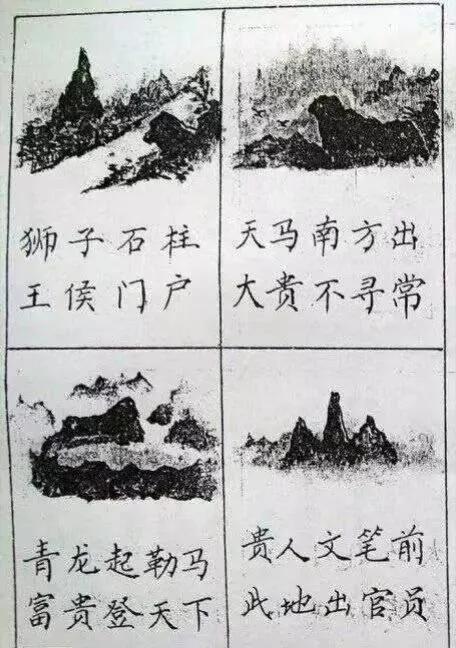 狮子石柱
王侯门户
天马南方出
大贵不寻常
青龙起勒马
富贵登天下
贵人文笔前
此地出官员